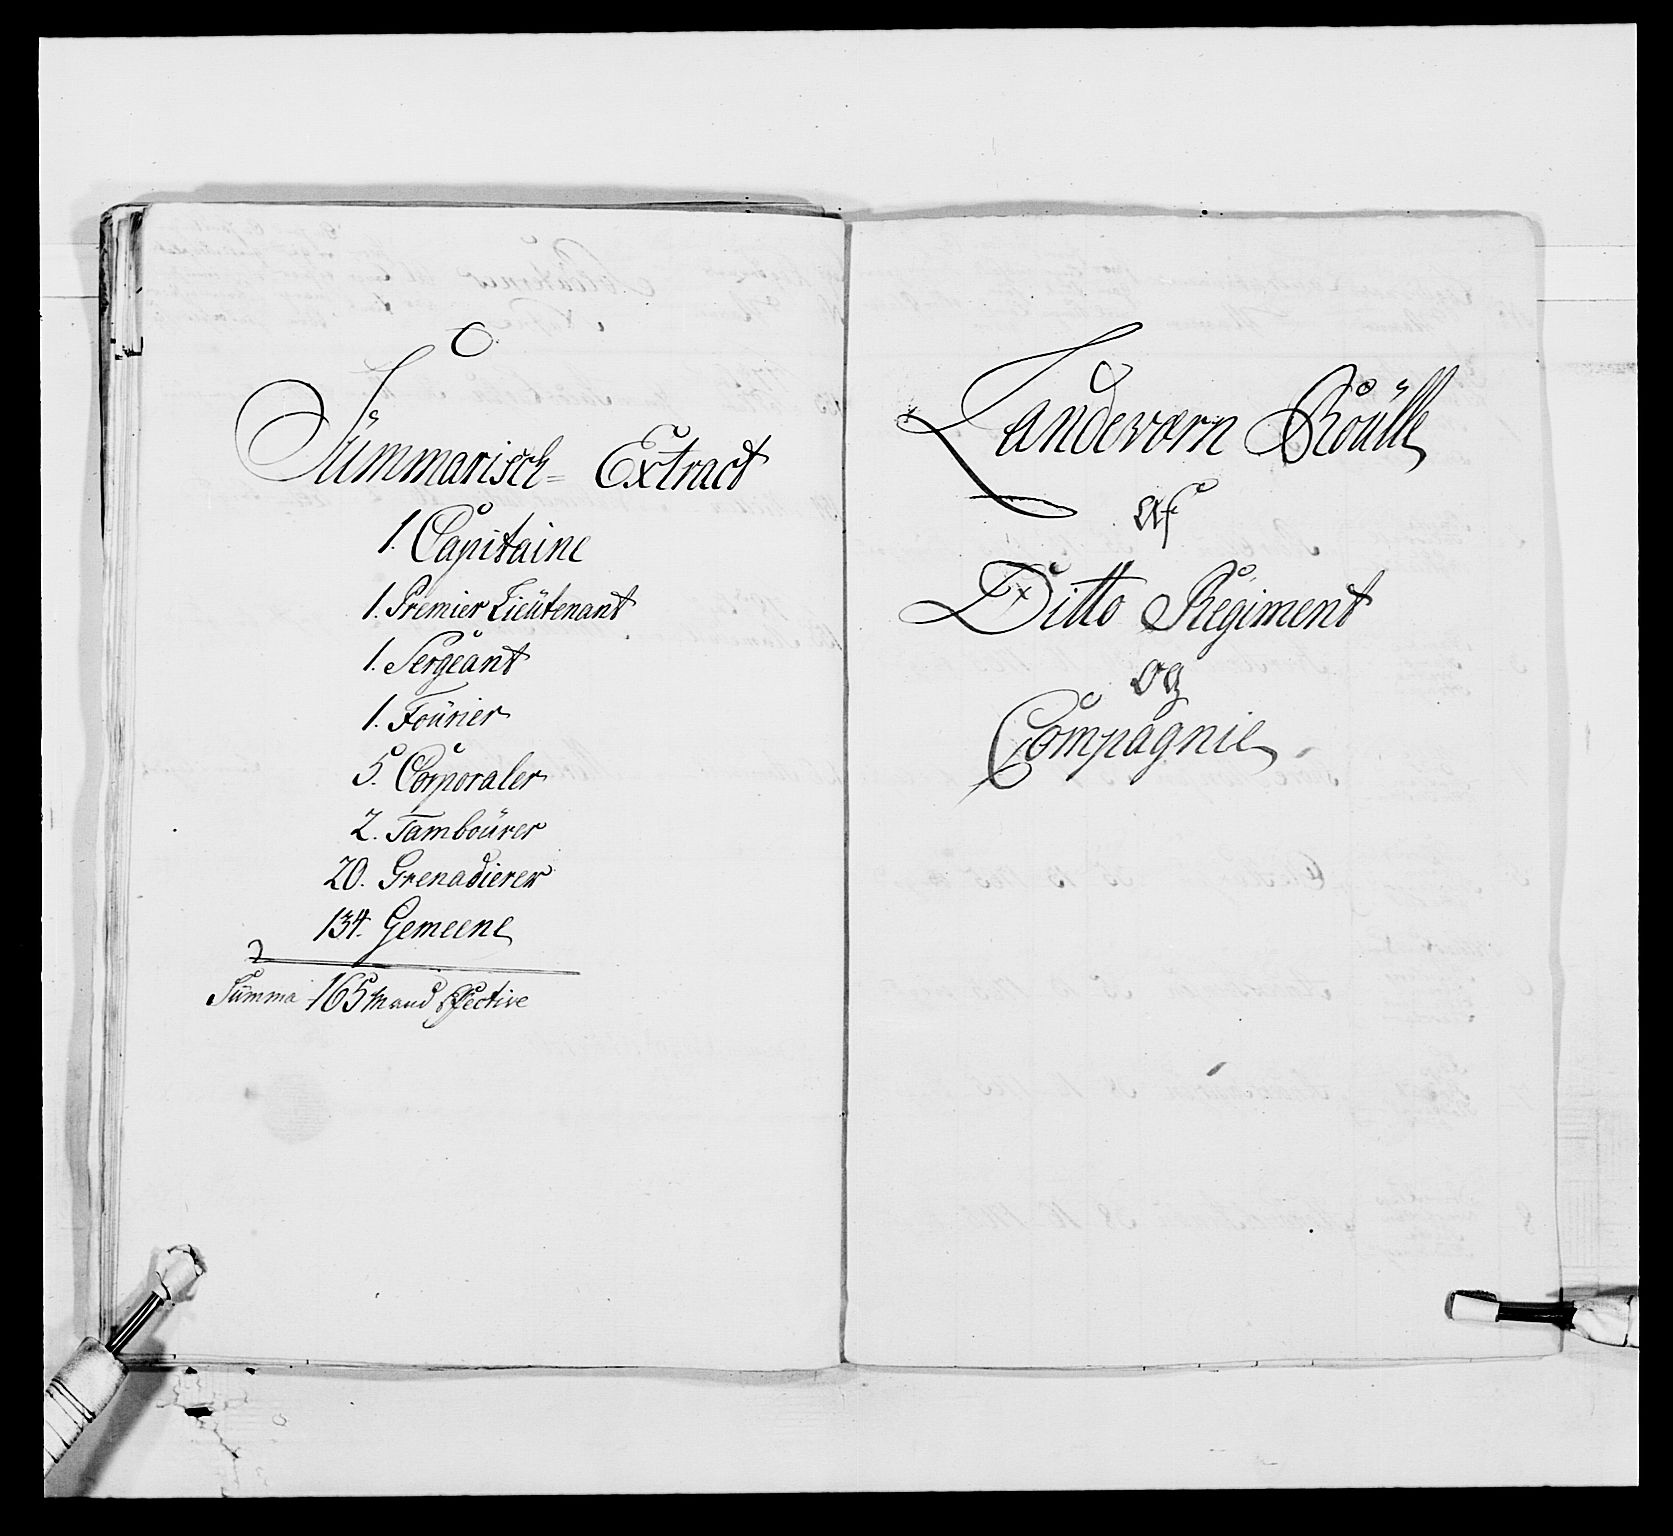 Summarisch= Extract
1. Capitaine
1. Premier Lieütenant
1. Sergeant
1. Foürier
5. Corporaler
2. Tamboürer
20. Grenadierer
134. Gemeene
Sümma 165 Mand Effective
Landeværn Roülle
af
Ditto Regiment
og
Compagnie